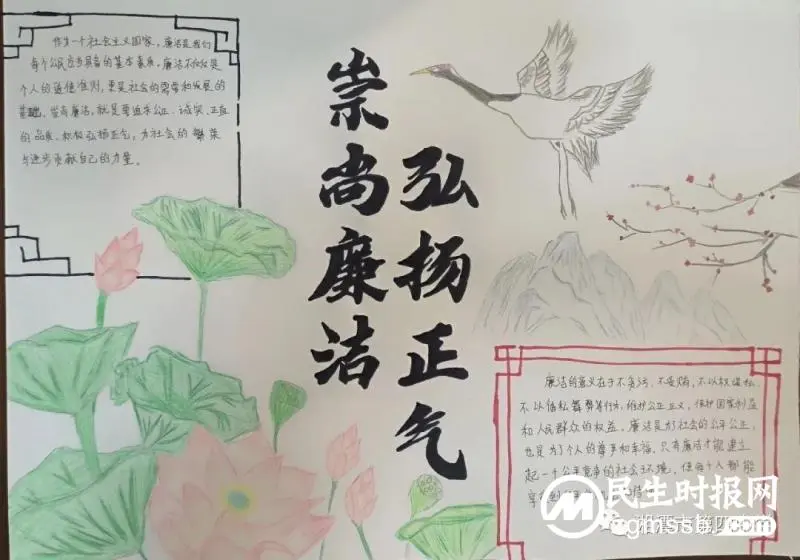 作为一个社会主义国家，廉洁是我们
每个公民应当具备的基本素质。廉洁不仅仅是
个人的道德准则，更是社会的需要和发展的
基础。崇尚廉洁，就是要追求公正、诚实、正直
的品质，积极弘扬正气，为社会的繁荣
与进步贡献自己的力量。
崇尚廉洁
弘扬正气
廉洁的意义在于不贪污、不受贿，不以权谋私、
不以值私舞弊等行为，维护公正正义，保护国家利益
和人民群众的权益。廉洁是为了社会的公平公正，
也是为了个人的尊严和幸福。只有廉洁才能建立
起一个公平竞争的社会环境，使每个人都能
享
民生时报网
gmssb.com